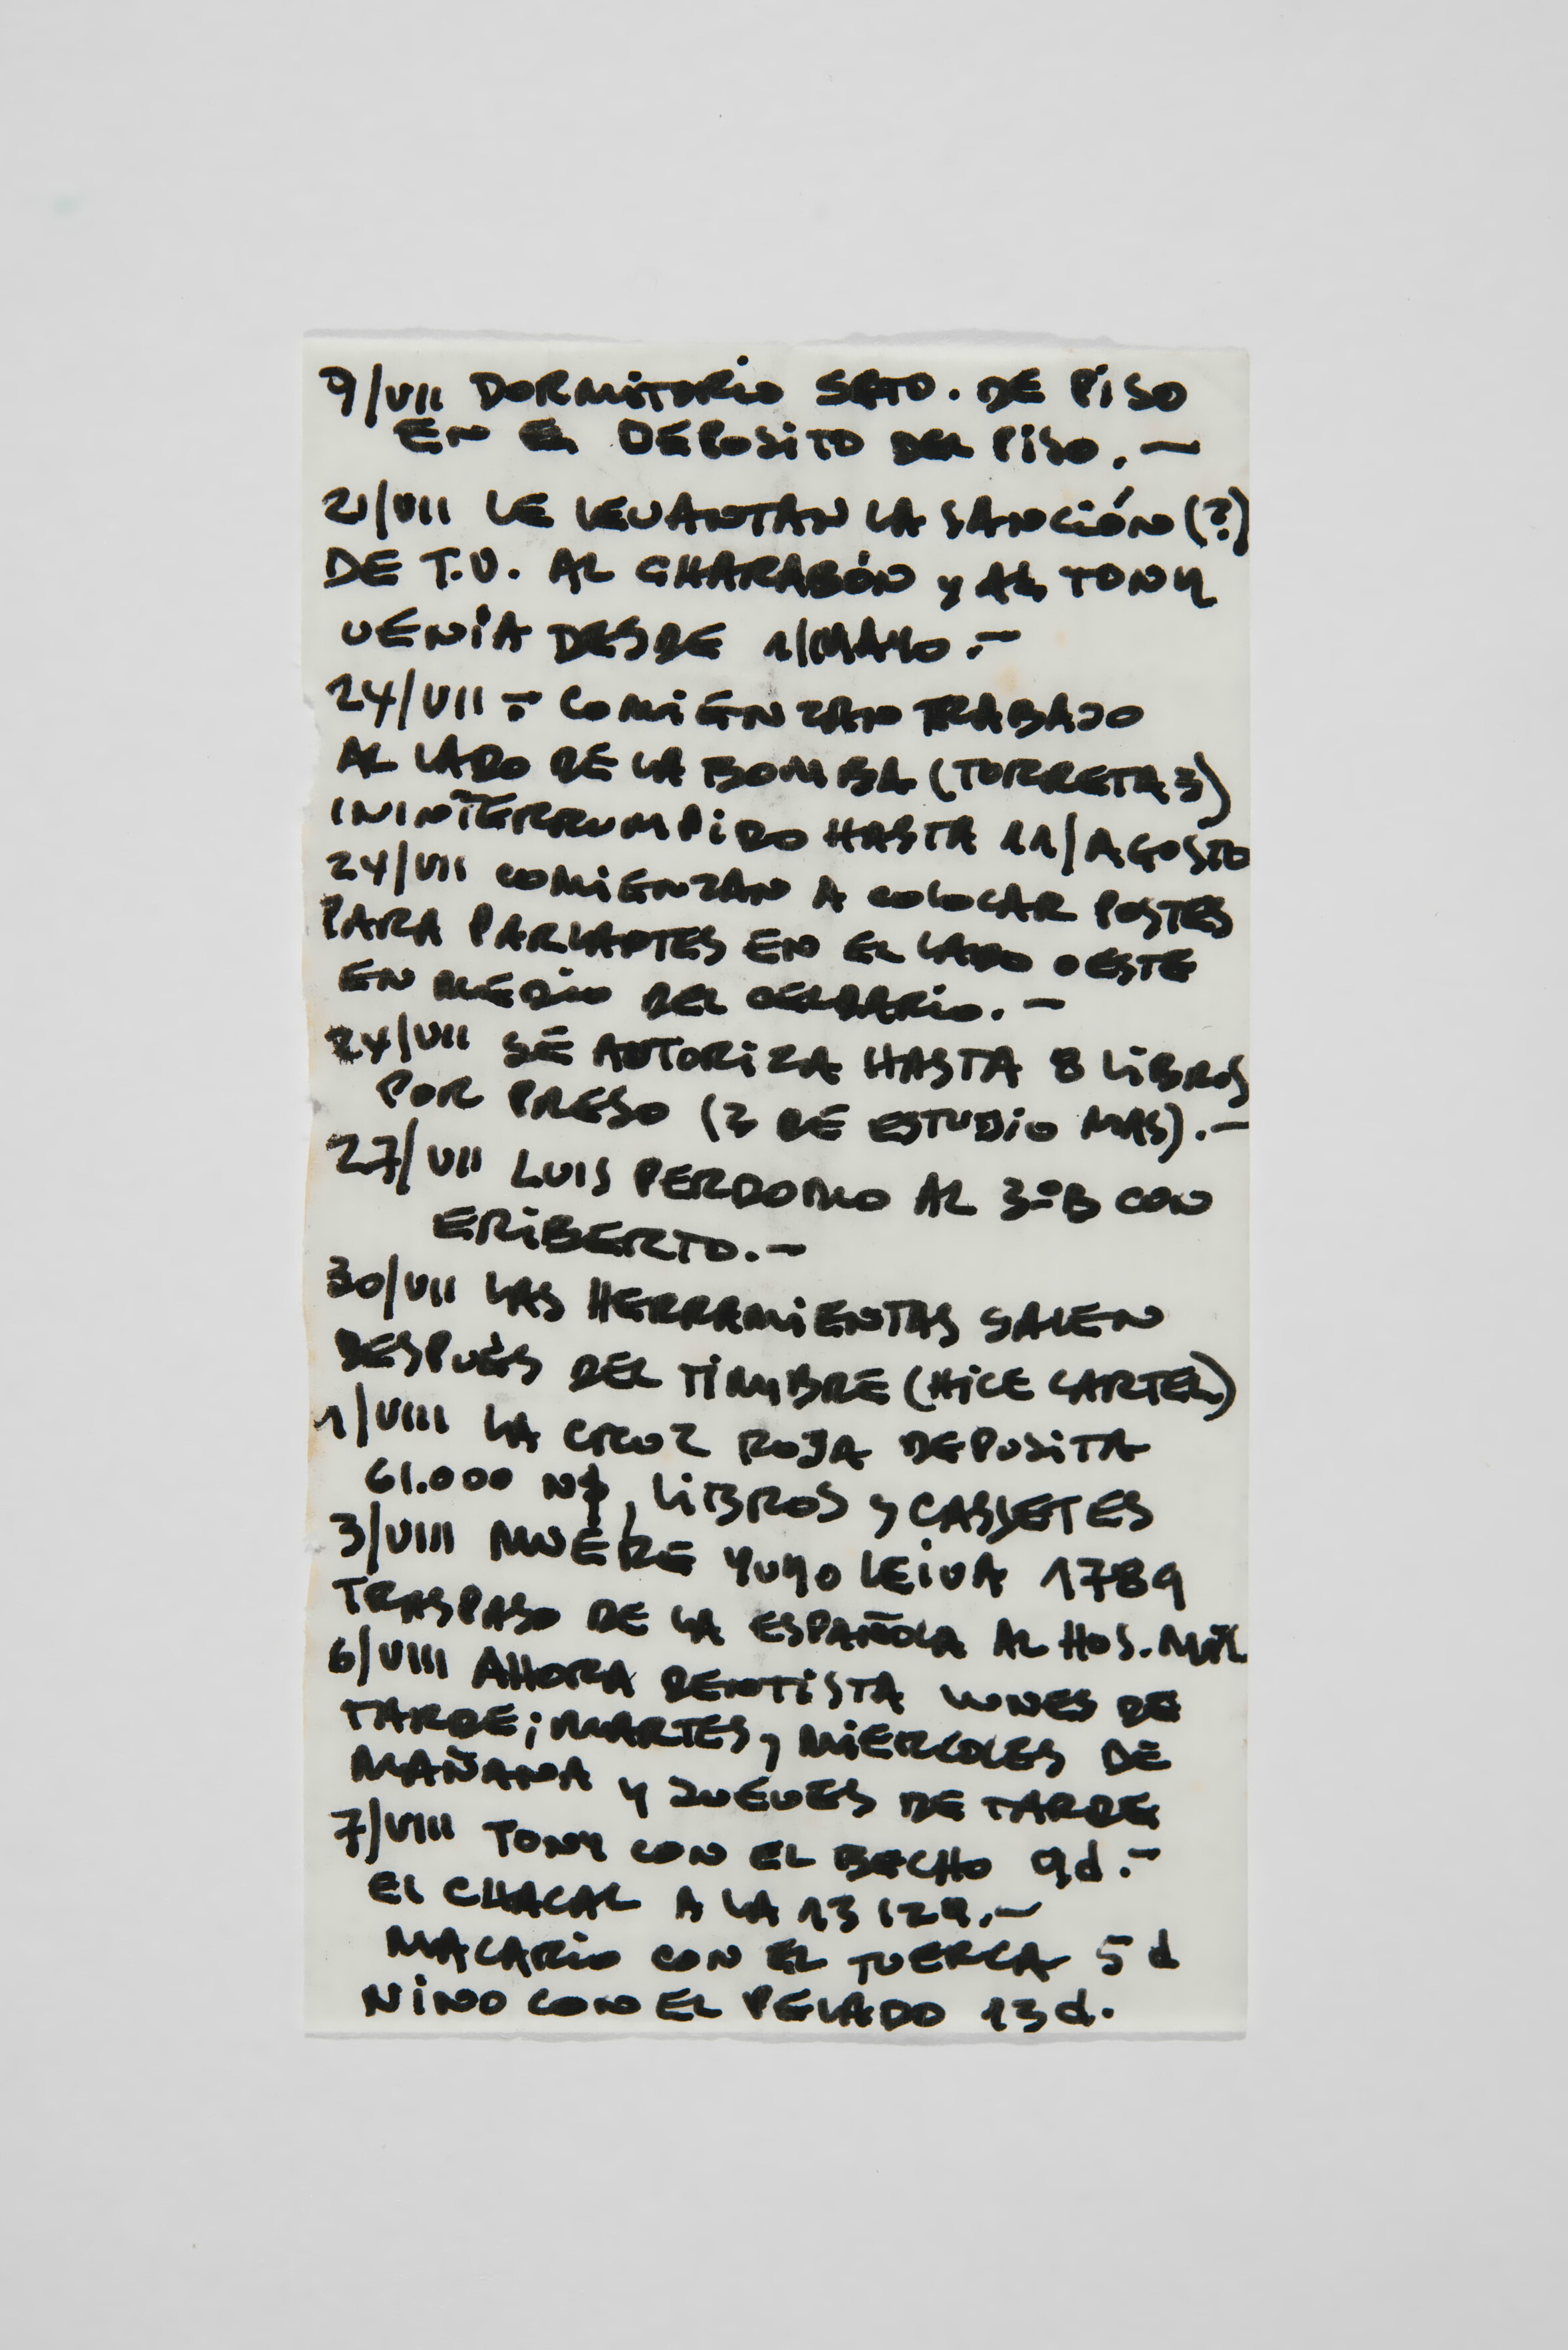 9/VII DORMITORIO SGTO. DE PISO
EN EL DEPOSITO DEL PISO.—
21/VII LE LEVANTAN LA SANCIÓN (?)
DE T.V. AL CHARABÓN y AL TONY
VENÍA DESDE 1/MAYO.—
24/VII.— COMIENZAN TRABAJO
AL LADO DE LA BOMBA (TORRETA 3)
ININTERRUMPIDO HASTA 11/AGOSTO
24/VII COMIENZAN A COLOCAR POSTES
PARA PARLANTES EN EL LADO OESTE
EN MEDIO DEL CELDARIO.—
24/VII SE AUTORIZA HASTA 8 LIBROS
POR PRESO (3 DE ESTUDIO MAS).—
27/VII LUIS PERDOMO AL 3ºB CON
ERIBERTO.—
30/VII LAS HERRAMIENTAS SALEN
DESPUÉS DEL TIMBRE (HICE CARTEL)
1/VIII LA CRUZ ROJA DEPOSITA
61.000 N$, LIBROS y CASSETES
3/VIII MUERE YUYO LEIVA 1789
TRASPASO DE LA ESPAÑOLA AL HOS. MIL
6/VIII AHORA DENTISTA LUNES DE
TARDE; MARTES, MIERCOLES DE
MAÑANA Y JUEVES DE TARDE
7/VIII TONY CON EL BACHO 9d.—
EL CHACAL A LA 13 IZQ.—
MACARIO CON EL TUERCA 5d
NINO CON EL PELADO 13d.